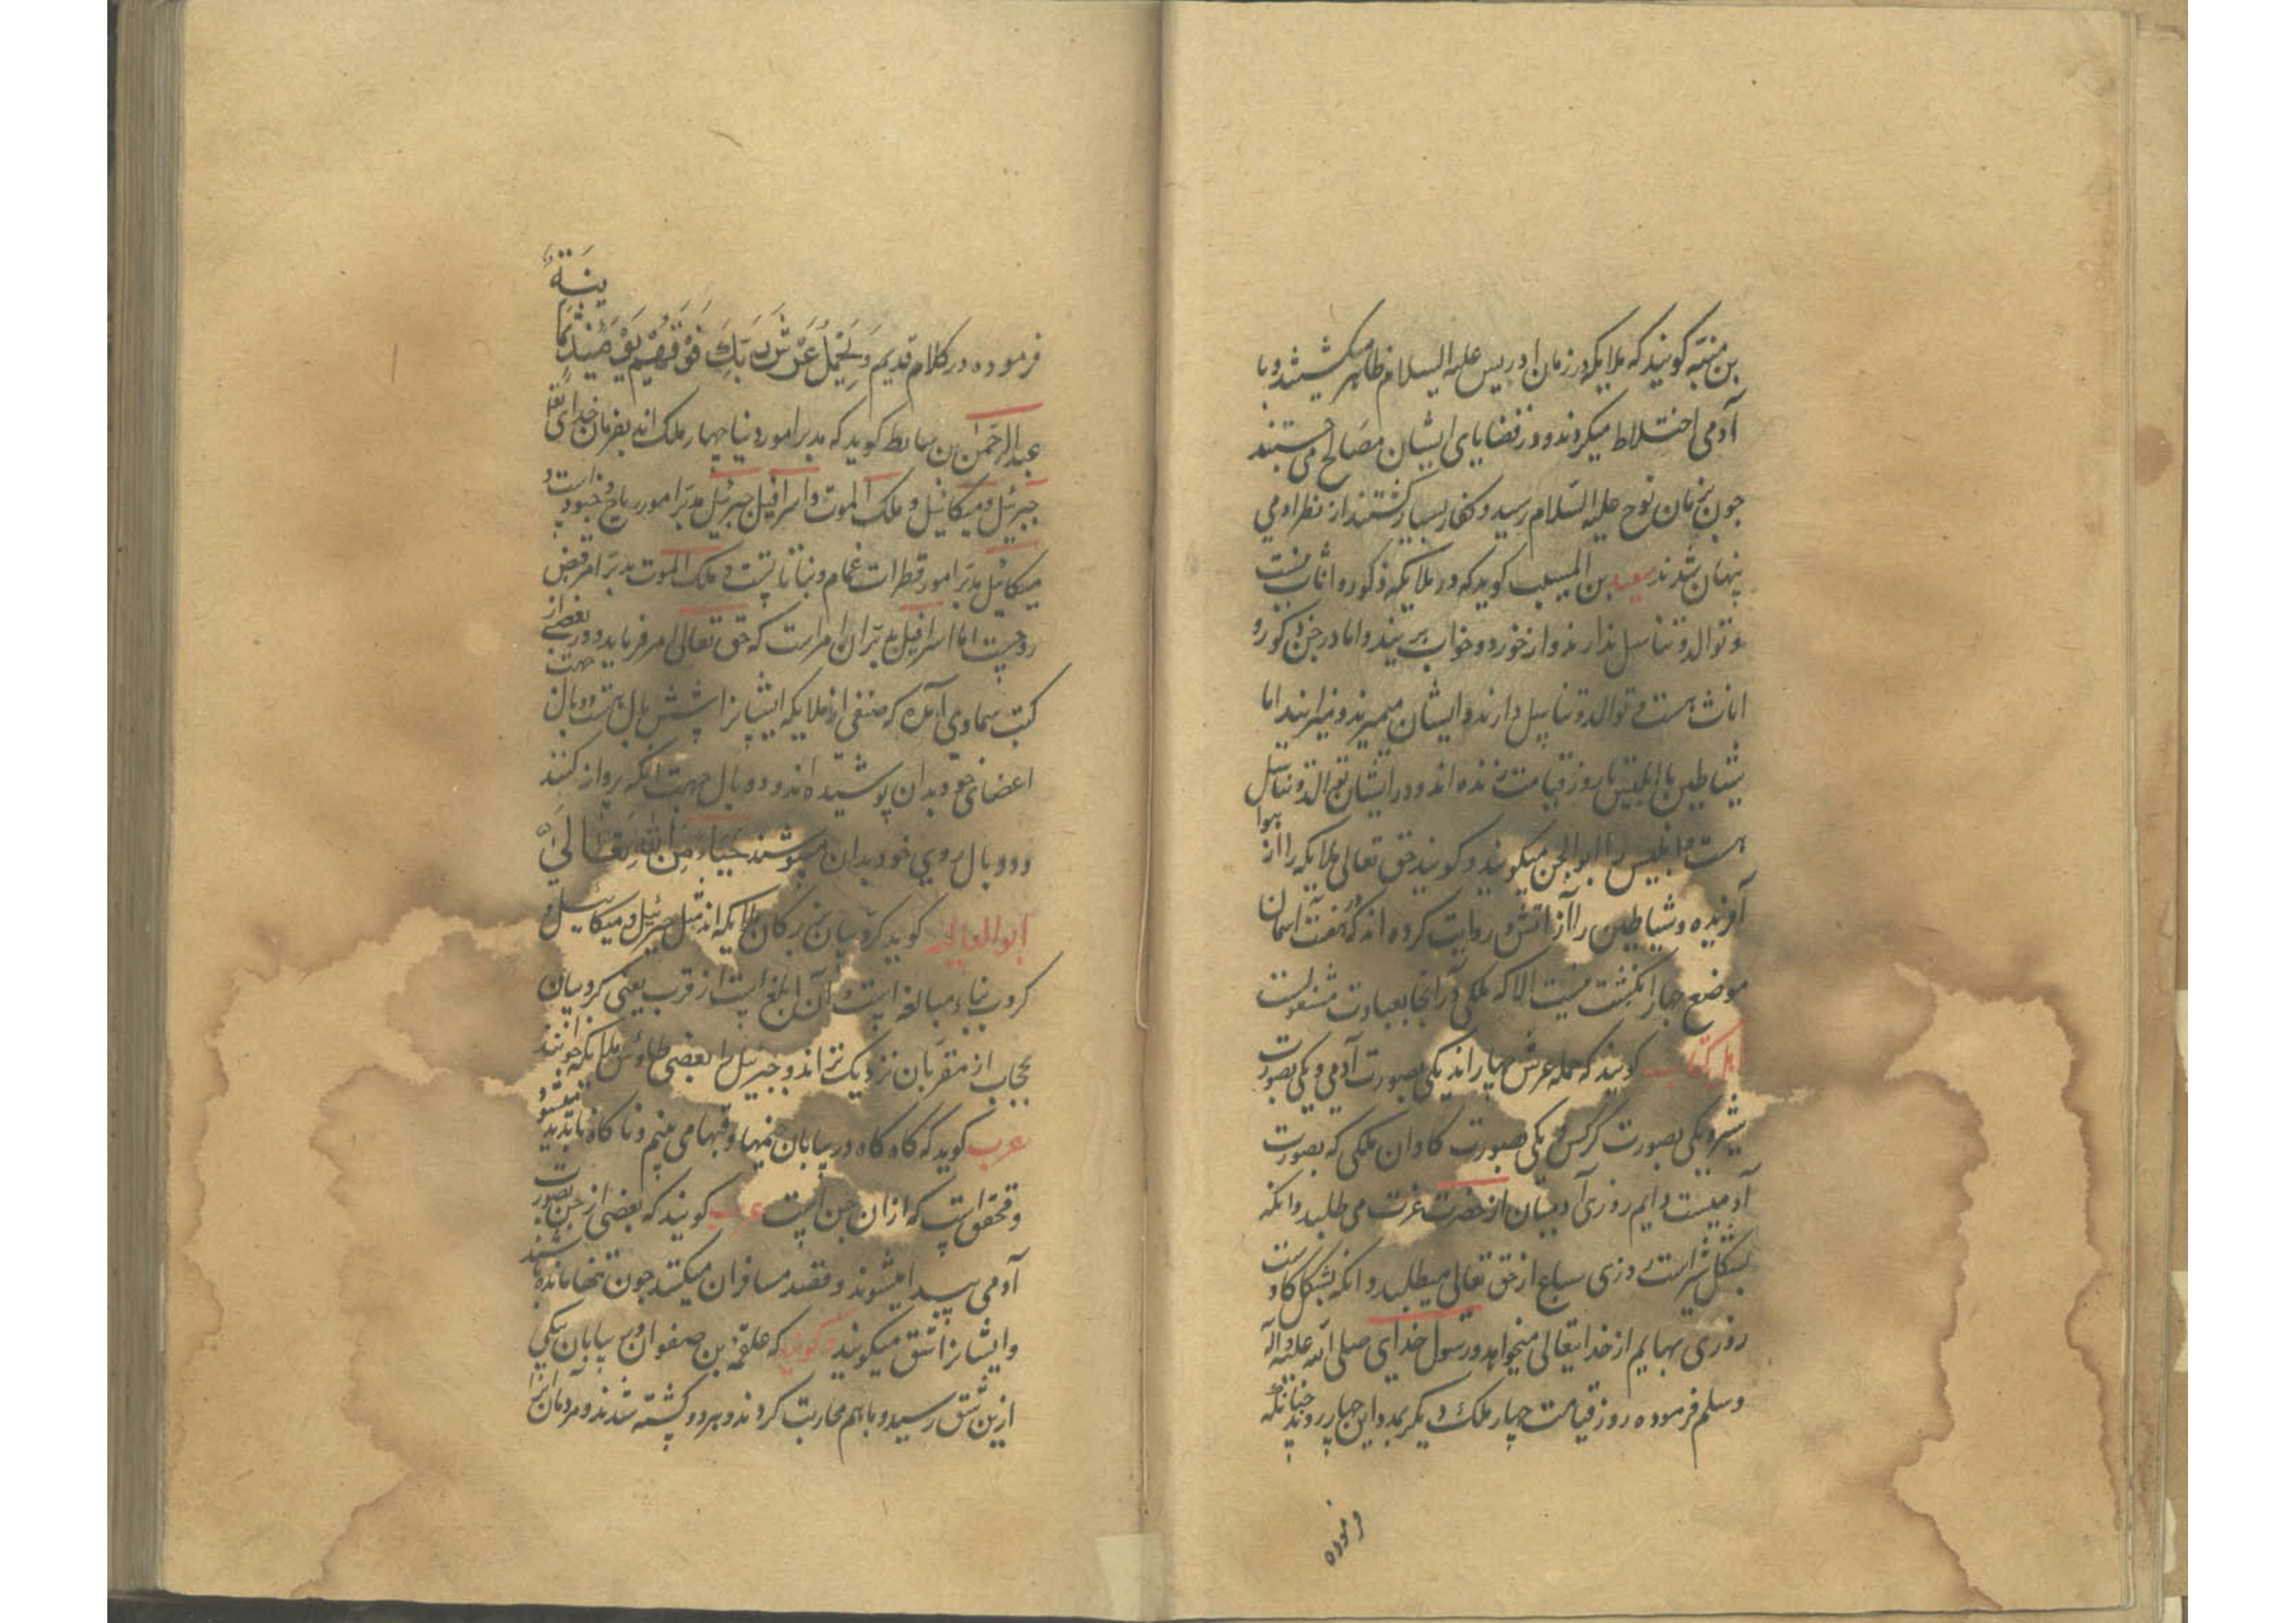 بن منبّه کویند که ملایکه در زمان ادریس علیه السلام ظاهر میکشتند و با
آدمی اختلاط میکردند و در قضایای ایشان مصالح می جستند
جون بزمان نوح علیه السّلام رسید و کفار بسیار کشتند از نظر ادمی
پنهان شدند سعید بن المسیب کوید که در ملایکه ذکور و اناث نیست
و توالد و تناسل ندارند و از خورد و خواب بریند و اما در جن ذکور و
اناث هست و توالد و تناسل دارند و ایشان میمیرند و میزایند اما
شیاطین با ابلیس تا روز قیامت زنده اند و در ایشان توالد و تناسل
هست و ابلیس را ابوالجن میکویند و کویند حق تعالی ملایکه را از هوا
آفریده و شیاطین را از اتش و روایت کرده اند که در هفت اسمان
موضع جهار انکشت نیست الا که ملکی در آنجا بعبادت مشغولست
اهل کتاب کویند که حمله عرش چهار اند یکی بصورت آدمی و یکی بصورت
شیر و یکی بصورت کرکس و یکی بصورت کاو ان ملکی که بصورت
آدمیست دایم روزی آدمیان از حضرت عزت می طلبد و انکه
بشکل شیر است روزی سباع از حق تعالی میطلبد و انکه بشکل کاوست
روزی بهایم از خدایتعالی میخواهد و رسول خدای صلی الله علیه و آله
وسلم فرموده روز قیامت چهار ملک دیکر بمدد این چهار روند چنانکه
فرموده
فرموده در کلام قدیم وَیَحْمِلُ عَرْشَ رَبِّکَ فَوْقَهُمْ یَوْمَئِذٍ ثَمَانِیَةٌ
عبد الرحمن بن سابط کوید که مدبر امور دنیا چهار ملک اند بفرمان خدای تعا
جبرئیل و میکائیل و ملک الموت و اسرافیل جبرئیل مدبّر امور ریاح و جنود است و
میکائیل مدبّر امور قطرات غمام و نباتاتست و ملک الموت مدبّر امر قبض
روحست اما اسرافیل مدبّر ان امر است که حق تعالی امر فرماید و در بعضی از
کتب سماوی آمده که صنفی از ملایکه ایشانرا شش بال هست دو بال جهت
اعضای خود بدان پوشیده اند و دو بال جهت انکه پرواز کنند
و دو بال روی خود بدان میپوشند حَیَاءً مِنَ اللّٰهِ تَعَالَی
ابو العالیه کوید کروبیان بزرکان ملایکه اند مثل جبرئیل و میکائیل و
کروب بناء مبالغه است و آن ابلغ است از قرب یعنی کروبیان
بحجاب از مقربان نزدیک تر اند و جبرئیل را بعضی طاوس ملایکه خوانند
عرب کوید که کاه کاه در بیابان خیمها و قبها می بینم و ناکاه ناپدید میشود
و محقق است که از ان جن است عرب کویند که بعضی از جن بصورت
آدمی پیدا میشوند و قصد مسافران میکنند جون تنها مانده باشند
و ایشانرا شق میکویند و کویند که علقمة بن صفوان در بیابان بیکی
ازین شق رسید و باهم محاربت کردند و هر دو کشته شدند و مردمان انرا